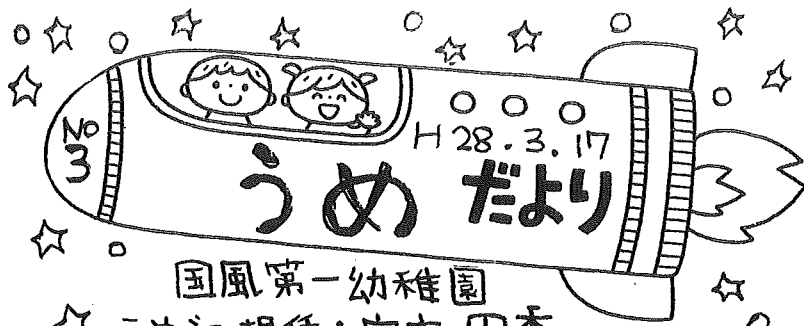 No
3
H28.3.17
うめ だより
国風第一幼稚園